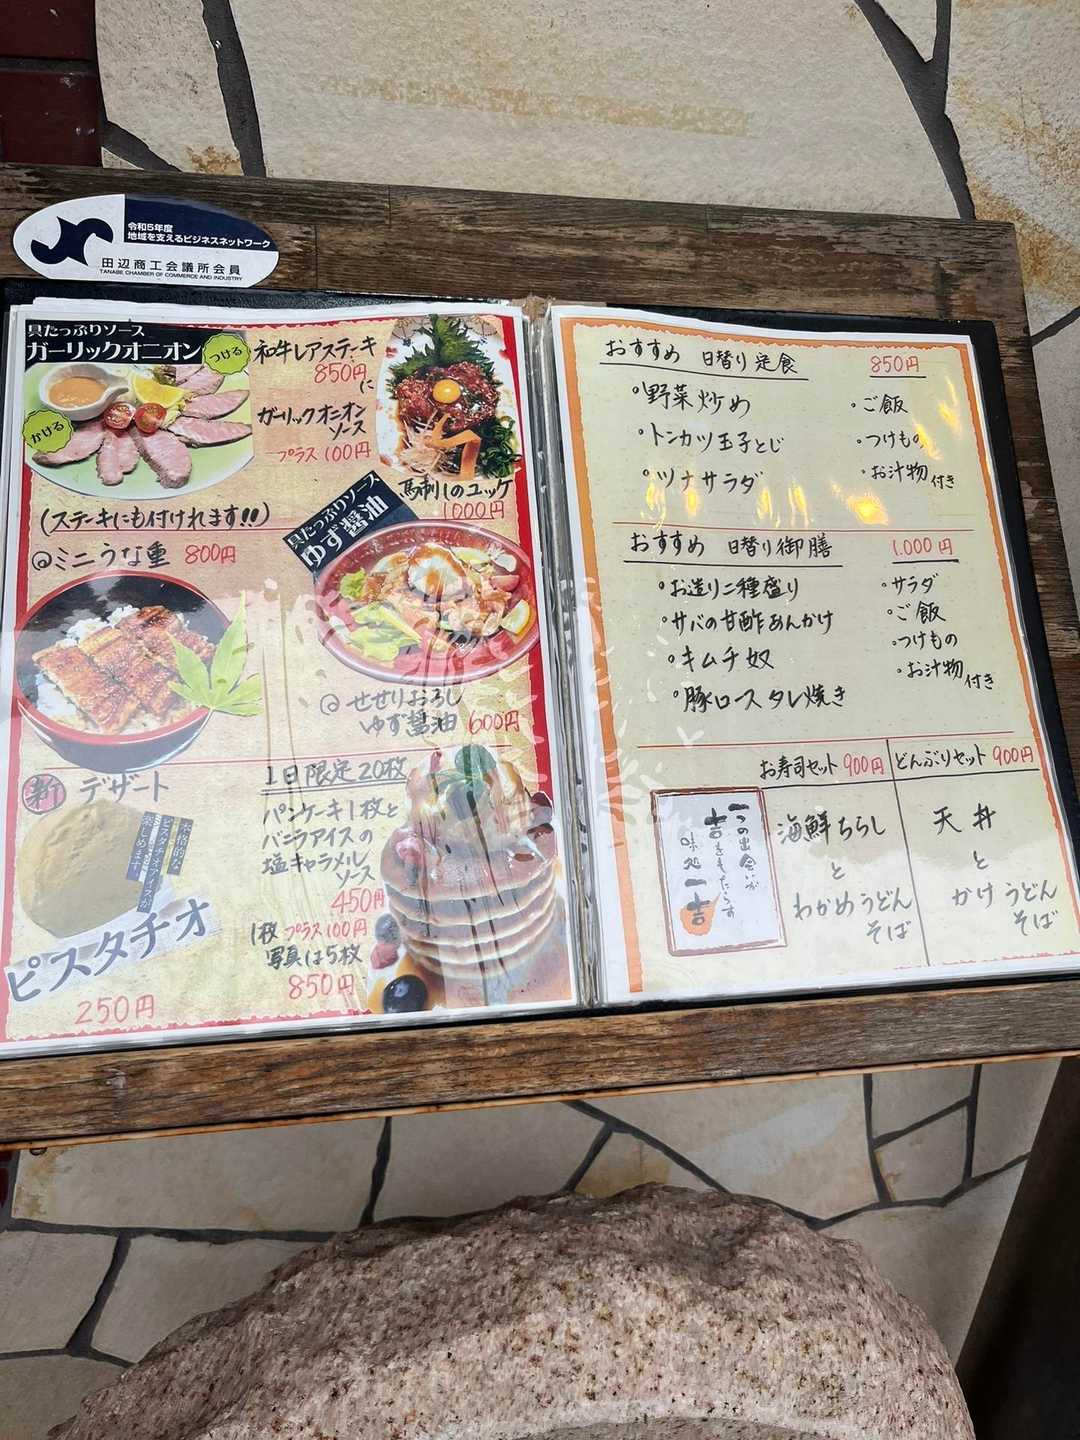 令和5年度
地域を支えるビジネスネットワーク
田辺商工会議所会員
TANABE CHAMBER OF COMMERCE AND INDUSTRY
具たっぷりソース
ガーリックオニオン
つける
かける
和牛レアステーキ
850円
に
ガーリックオニオン
ソース
プラス100円
(ステーキにも付けれます!!)
馬刺しのユッケ
1000円
@ミニうな重 800円
具たっぷりソース
ゆず醤油
@せせりおろし
ゆず醤油 600円
新 デザート
本格的な
ピスタチオアイスが
楽しめます。
ピスタチオ
250円
1日限定20枚
パンケーキ1枚と
バニラアイスの
塩キャラメル
ソース
450円
1枚プラス100円
写真は5枚
850円
おすすめ 日替り定食 850円
・野菜炒め
・トンカツ玉子とじ
・ツナサラダ
・ご飯
・つけもの
・お汁物付き
おすすめ 日替り御膳 1.000円
・お造り二種盛り
・サバの甘酢あんかけ
・キムチ奴
・豚ロースタレ焼き
・サラダ
・ご飯
・つけもの
・お汁物付き
お寿司セット 900円
海鮮ちらし
と
わかめうどん
そば
どんぶりセット 900円
天丼
と
かけうどん
そば
一つの出会いが
吉をもたらす
味処 一吉